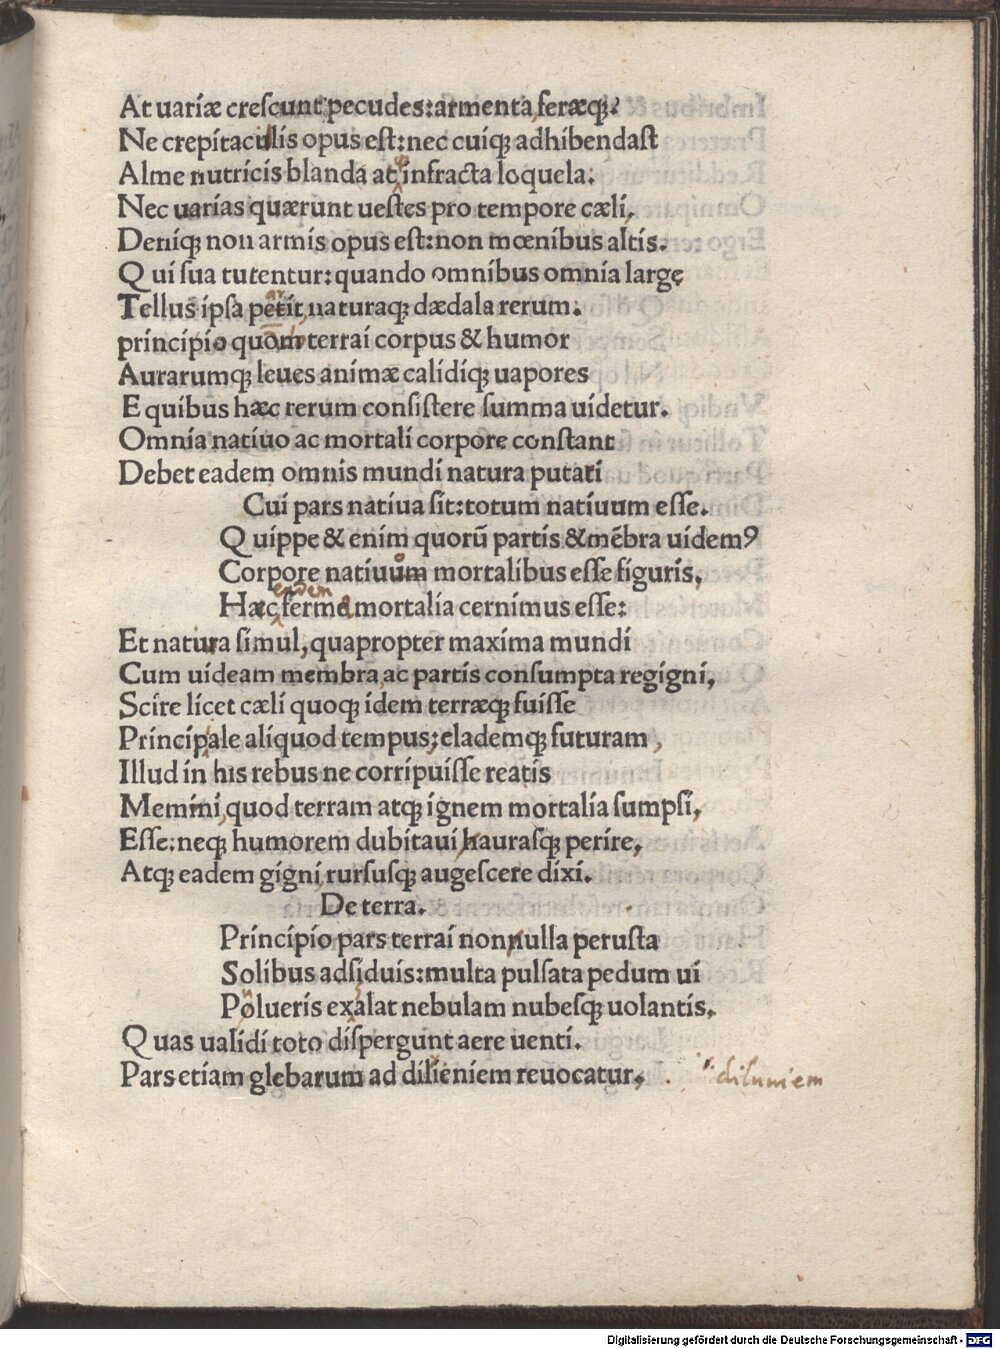 At uariæ creſcunt pecudes: armenta, feræq;:
Ne crepitaculis opus eſt: nec cuiq; adhibendaſt
Alme nutricis blanda atq; infracta loquela:
Nec uarias quærunt ueſtes pro tempore cæli,
Deniq; non armis opus eſt: non mœnibus altis.
Qui ſua tutentur: quando omnibus omnia largę
Tellus ipſa petit, naturaq; dædala rerum.
ar
principio quom terrai corpus & humor
Aurarumq; leues animæ calidiq; uapores
E quibus hæc rerum conſiſtere ſumma uidetur.
Omnia natiuo ac mortali corpore conſtant
Debet eadem omnis mundi natura putari
Cui pars natiua ſit: totum natiuum eſſe.
Quippe & enim quorū partis & mēbra uidemꝰ
Corpore natiuum mortalibus eſſe figuris,
eadem
Hæc ferme mortalia cernimus eſſe:
Et natura ſimul, quapropter maxima mundi
Cum uideam membra, ac partis conſumpta regigni,
Scire licet cæli quoq; idem terræq; fuiſſe
Principale aliquod tempus; clademq; futuram,
Illud in his rebus ne corripuiſſe reatis
Memini, quod terram atq; ignem mortalia ſumpſi,
Eſſe: neq; humorem dubitaui, haurasq; perire,
Atq; eadem gigni, rurſusq; augeſcere dixi.
De terra.
Principio pars terrai nonnulla peruſta
Solibus adſiduis: multa pulſata pedum ui
Polueris exalat nebulam nubeſq; uolantis,
Quas ualidi toto diſpergunt aere uenti.
Pars etiam glebarum ad dilieniem reuocatur, . " diluuiem
Digitalisierung gefördert durch die Deutsche Forschungsgemeinschaft - DFG